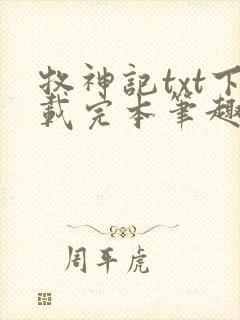 牧神記txt下
載完本筆趣
周平虎